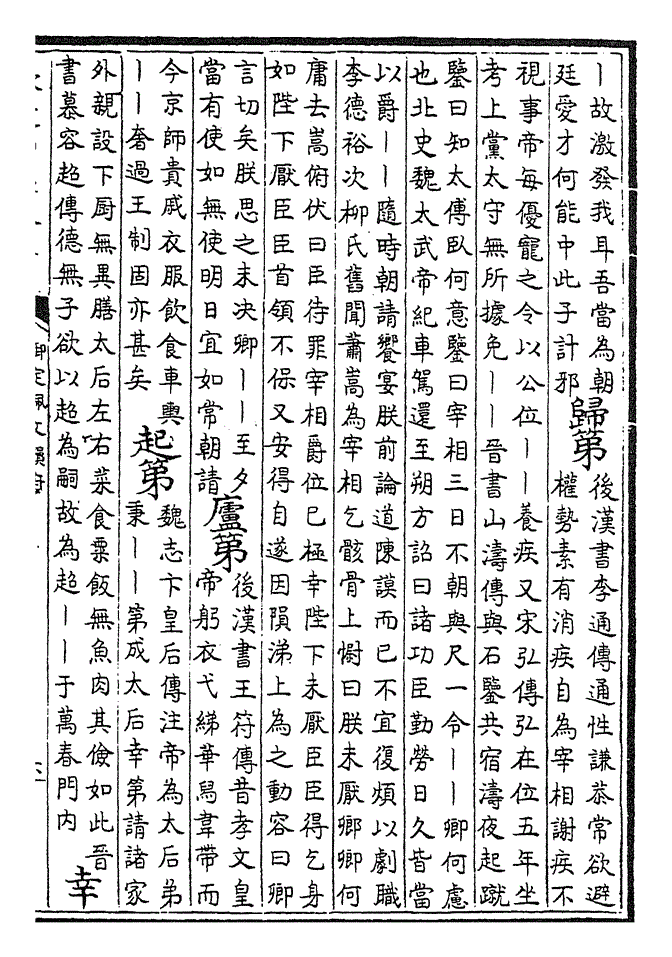 丨故激發我耳吾當為朝
廷愛才何能中此子計邪
歸第
後漢書李通傳通性謙恭常欲避
權勢素有消疾自為宰相謝疾不
視事帝每優寵之令以公位丨丨養疾又宋弘傳弘在位五年坐
考上黨太守無所據免丨丨晉書山濤傳與石鑒共宿濤夜起蹴
鑒曰知太傅臥何意鑒曰宰相三日不朝與尺一令丨丨卿何慮
也北史魏太武帝紀車駕還至朔方詔曰諸功臣勤勞日久皆當
以爵丨丨隨時朝請饗宴朕前論道陳謨而已不宜復煩以劇職
李德裕次柳氏舊聞蕭嵩為宰相乞骸骨上慰曰朕未厭卿卿何
庸去嵩俯伏曰臣待罪宰相爵位已極幸陛下未厭臣臣得乞身
如陛下厭臣臣首領不保又安得自遂因隕涕上為之動容曰卿
言切矣朕思之未決卿丨丨至夕
當有使如無使明日宜如常朝請
廬第
後漢書王符傳昔孝文皇
帝躬衣弋綈華舄韋帶而
今京師貴戚衣服飲食車輿
丨丨奢過王制固亦甚矣
起第
魏志卞皇后傳注帝為太后弟
秉丨丨第成太后幸第請諸家
外親設下厨無異膳太后左右菜食粟飯無魚肉其儉如此晉
書慕容超傳德無子欲以超為嗣故為超丨丨于萬春門内
幸
御定佩文韻府